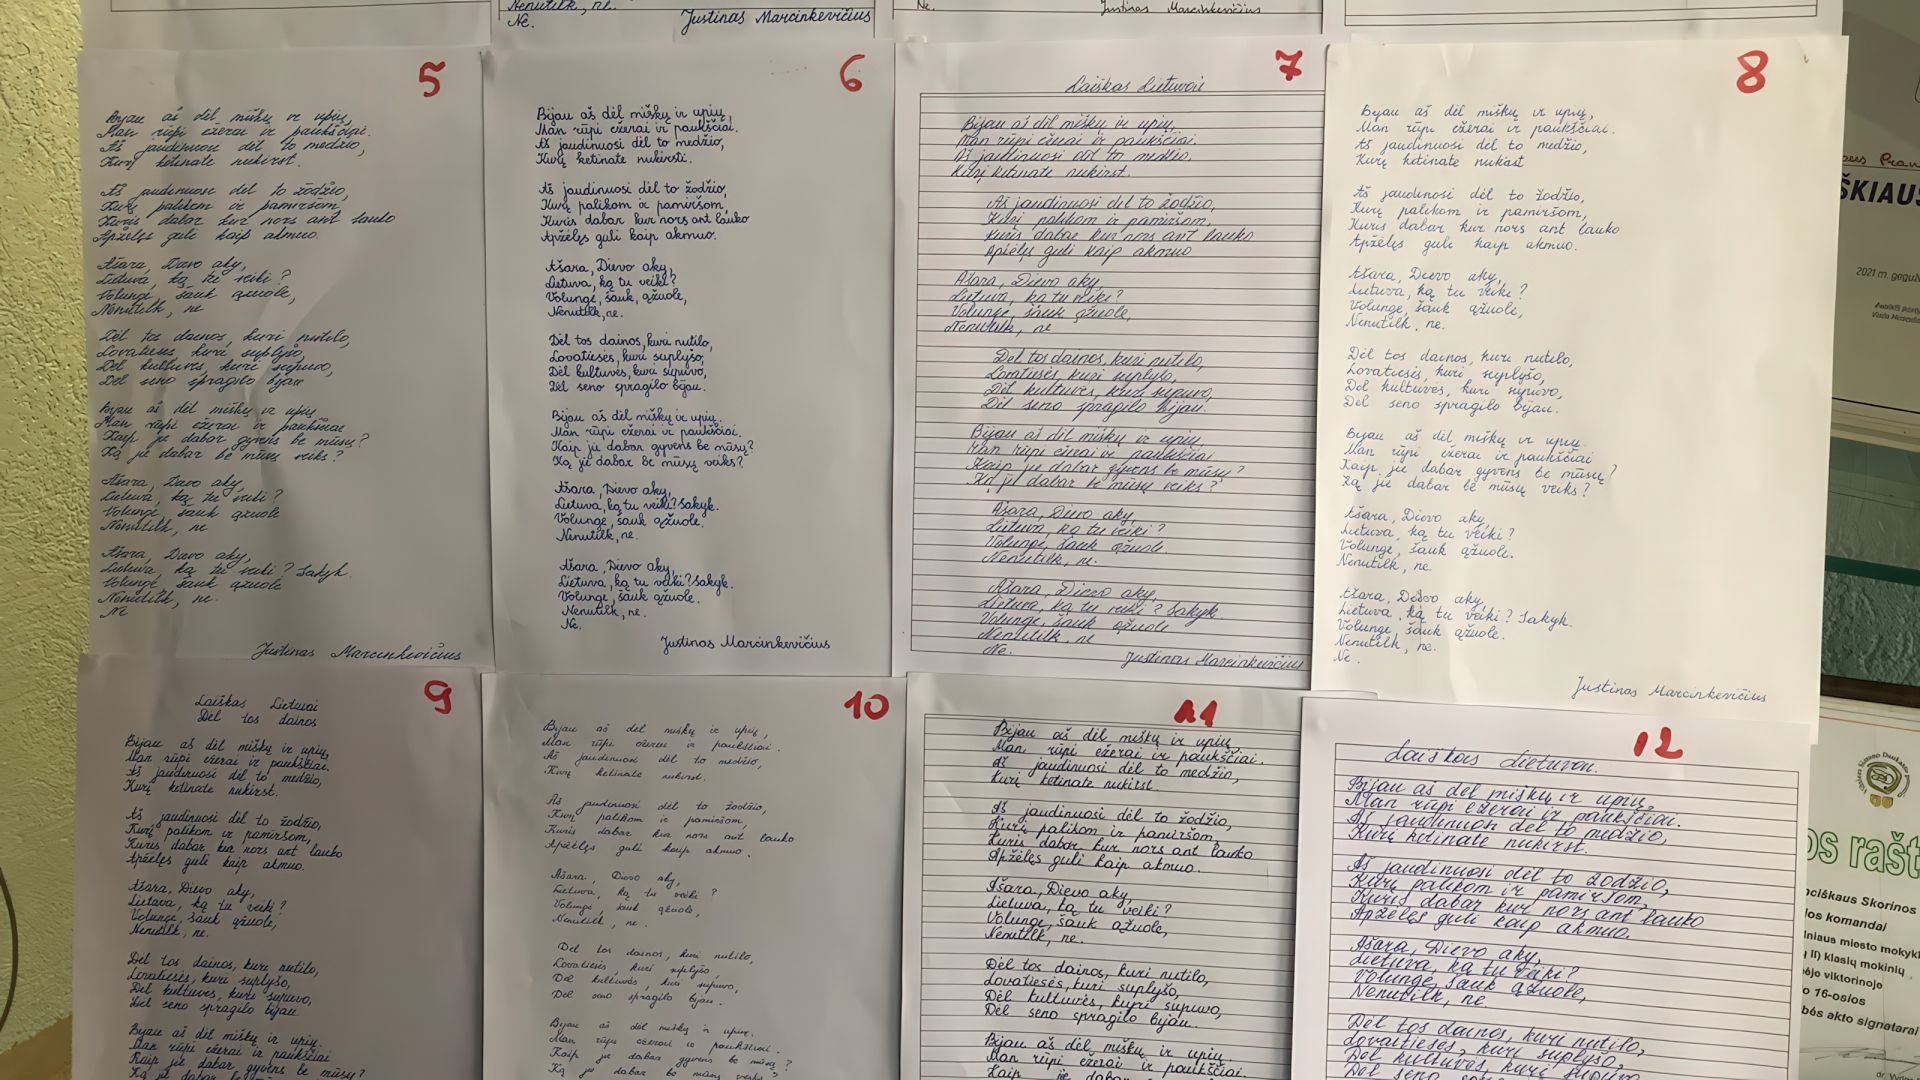 Nenutilk, ne.
Ne.
Justinas Marcinkevičius
Ne.
Justinas Marcinkevičius
5
Bijau aš dėl miškų ir upių,
Man rūpi ežerai ir paukščiai.
Aš jaudinuosi dėl to medžio,
Kurį ketinate nukirst.
Aš jaudinuosi dėl to žodžio,
Kurį palikom ir pamiršom,
Kuris dabar kur nors ant lauko
Apžėlęs guli kaip akmuo.
Ašara, Dievo aky,
Lietuva, ką tu veiki?
Volunge, šauk ąžuole,
Nenutilk, ne
Dėl tos dainos, kuri nutilo,
Lovatiesės, kuri suplyšo,
Dėl kultuvės, kuri supuvo,
Dėl seno spragilo bijau
Bijau aš dėl miškų ir upių
Man rūpi ežerai ir paukščiai
Kaip jie dabar gyvens be mūsų?
Ką jie dabar be mūsų veiks?
Ašara, Dievo aky,
Lietuva, ką tu veiki?
Volunge, šauk ąžuole
Nenutilk, ne
Ašara, Dievo aky,
Lietuva, ką tu veiki? Sakyk.
Volunge, šauk ąžuole
Nenutilk, ne.
Ne
Justinas Marcinkevičius
6
Bijau aš dėl miškų ir upių,
Man rūpi ežerai ir paukščiai.
Aš jaudinuosi dėl to medžio,
Kurį ketinate nukirsti.
Aš jaudinuosi dėl to žodžio,
Kurį palikom ir pamiršom,
Kuris dabar kur nors ant lauko
Apžėlęs guli kaip akmuo.
Ašara, Dievo aky,
Lietuva, ką tu veiki?
Volunge, šauk, ąžuole,
Nenutilk, ne.
Dėl tos dainos, kuri nutilo,
Lovatiesės, kuri suplyšo,
Dėl kultuvės, kuri supuvo,
Dėl seno spragilo bijau.
Bijau aš dėl miškų ir upių.
Man rūpi ežerai ir paukščiai.
Kaip jie dabar gyvens be mūsų?
Ką jie dabar be mūsų veiks?
Ašara, Dievo aky,
Lietuva, ką tu veiki? Sakyk.
Volunge, šauk ąžuole.
Nenutilk, ne.
Ašara, Dievo aky,
Lietuva, ką tu veiki? Sakyk.
Volunge, šauk ąžuole.
Nenutilk, ne.
Ne.
Justinas Marcinkevičius
7
Laiškas Lietuvai
Bijau aš dėl miškų ir upių,
Man rūpi ežerai ir paukščiai.
Aš jaudinuosi dėl to medžio,
Kurį ketinate nukirst.
Aš jaudinuosi dėl to žodžio,
Kurį palikom ir pamiršom,
Kuris dabar kur nors ant lauko
Apžėlęs guli kaip akmuo
Ašara, Dievo aky,
Lietuva, ką tu veiki?
Volunge, šauk ąžuole,
Nenutilk, ne
Dėl tos dainos, kuri nutilo,
Lovatiesės, kuri suplyšo,
Dėl kultuvės, kuri supuvo,
Dėl seno spragilo bijau.
Bijau aš dėl miškų ir upių,
Man rūpi ežerai ir paukščiai
Kaip jie dabar gyvens be mūsų?
Ką jie dabar be mūsų veiks?
Ašara, Dievo aky
Lietuva, ką tu veiki?
Volunge, šauk ąžuole.
Nenutilk, ne.
Ašara, Dievo aky,
Lietuva, ką tu veiki? Sakyk.
Volunge, šauk ąžuole
Nenutilk, ne
Ne.
Justinas Marcinkevičius
8
Bijau aš dėl miškų ir upių,
Man rūpi ežerai ir paukščiai.
Aš jaudinuosi dėl to medžio,
Kurį ketinate nukirst
Aš jaudinosi dėl to žodžio,
Kurį palikom ir pamiršom,
Kuris dabar kur nors ant lauko
Apžėlęs guli kaip akmuo.
Ašara, Dievo aky,
Lietuva, ką tu veiki?
Volunge, šauk ąžuole,
Nenutilk, ne.
Dėl tos dainos, kuri nutilo,
Lovatiesės, kuri suplyšo,
Dėl kultuvės, kuri supuvo,
Dėl seno spragilo bijau.
Bijau aš dėl miškų ir upių.
Man rūpi ežerai ir paukščiai
Kaip jie dabar gyvens be mūsų?
Ką jie dabar be mūsų veiks?
Ašara, Dievo aky,
Lietuva, ką tu veiki?
Volunge, šauk ąžuole.
Nenutilk, ne.
Ašara, Dievo aky,
Lietuva ką tu veiki? Sakyk.
Volunge, šauk ąžuole.
Nenutilk, ne.
Ne.
Justinas Marcinkevičius
9
Laiškas Lietuvai
Dėl tos dainos
Bijau aš dėl miškų ir upių,
Man rūpi ežerai ir paukščiai.
Aš jaudinuosi dėl to medžio,
Kurį ketinate nukirst.
Aš jaudinuosi dėl to žodžio,
Kurį palikom ir pamiršom,
Kuris dabar kur nors ant lauko
Apžėlęs guli kaip akmuo.
Ašara, Dievo aky,
Lietuva, ką tu veiki?
Volunge, šauk ąžuole,
Nenutilk, ne.
Dėl tos dainos, kuri nutilo,
Lovatiesės, kuri suplyšo,
Dėl kultuvės, kuri supuvo,
Dėl seno spragilo bijau
Bijau aš dėl miškų ir upių,
Man rūpi ežerai ir paukščiai
Kaip jie dabar gyvens be mūsų?
Ką jie dabar be mūsų
10
Bijau aš dėl miškų ir upių,
Man rūpi ežerai ir paukščiai.
Aš jaudinuosi dėl to medžio,
Kurį ketinate nukirst.
Aš jaudinuosi dėl to žodžio,
Kurį palikom ir pamiršom,
Kuris dabar kur nors ant lauko
Apžėlęs guli kaip akmuo.
Ašara, Dievo aky,
Lietuva, ką tu veiki?
Volunge, šauk ąžuole,
Nenutilk, ne.
Dėl tos dainos, kuri nutilo,
Lovatiesės, kuri suplyšo,
Dėl kultuvės, kuri supuvo,
Dėl seno spragilo bijau.
Bijau aš dėl miškų ir upių.
Man rūpi ežerai ir paukščiai.
Kaip jie dabar gyvens be mūsų?
Ką jie dabar be mūsų veiks?
11
Bijau aš dėl miškų ir upių
Man rūpi ežerai ir paukščiai.
Aš jaudinuosi dėl to medžio,
Kurį ketinate nukirst.
Aš jaudinuosi dėl to žodžio,
Kurį palikom ir pamiršom,
Kuris dabar kur nors ant lauko
Apžėlęs guli kaip akmuo.
Ašara, Dievo aky,
Lietuva, ką tu veiki?
Volunge, šauk ąžuole,
Nenutilk, ne.
Dėl tos dainos, kuri nutilo,
Lovatiesės, kuri suplyšo,
Dėl kultuvės, kuri supuvo,
Dėl seno spragilo bijau.
Bijau aš dėl miškų ir upių.
Man rūpi ežerai ir paukščiai.
Kaip jie dabar
12
Laiškas Lietuvai.
Bijau aš dėl miškų ir upių,
Man rūpi ežerai ir paukščiai.
Aš jaudinuosi dėl to medžio,
Kurį ketinate nukirst.
Aš jaudinuosi dėl to žodžio,
Kurį palikom ir pamiršom,
Kuris dabar kur nors ant lauko
Apžėlęs guli kaip akmuo.
Ašara, Dievo aky,
Lietuva, ką tu veiki?
Volunge, šauk ąžuole,
Nenutilk, ne
Dėl tos dainos, kuri nutilo,
Lovatiesės, kuri suplyšo,
Dėl kultuvės, kuri supuvo,
Dėl seno
ŠKIAUS
2021 m.
os rašt
Skorinos
los komandai
lniaus miesto
II) klasių mokinių
viktorinoje
o 16-osios
bės akto signatarai